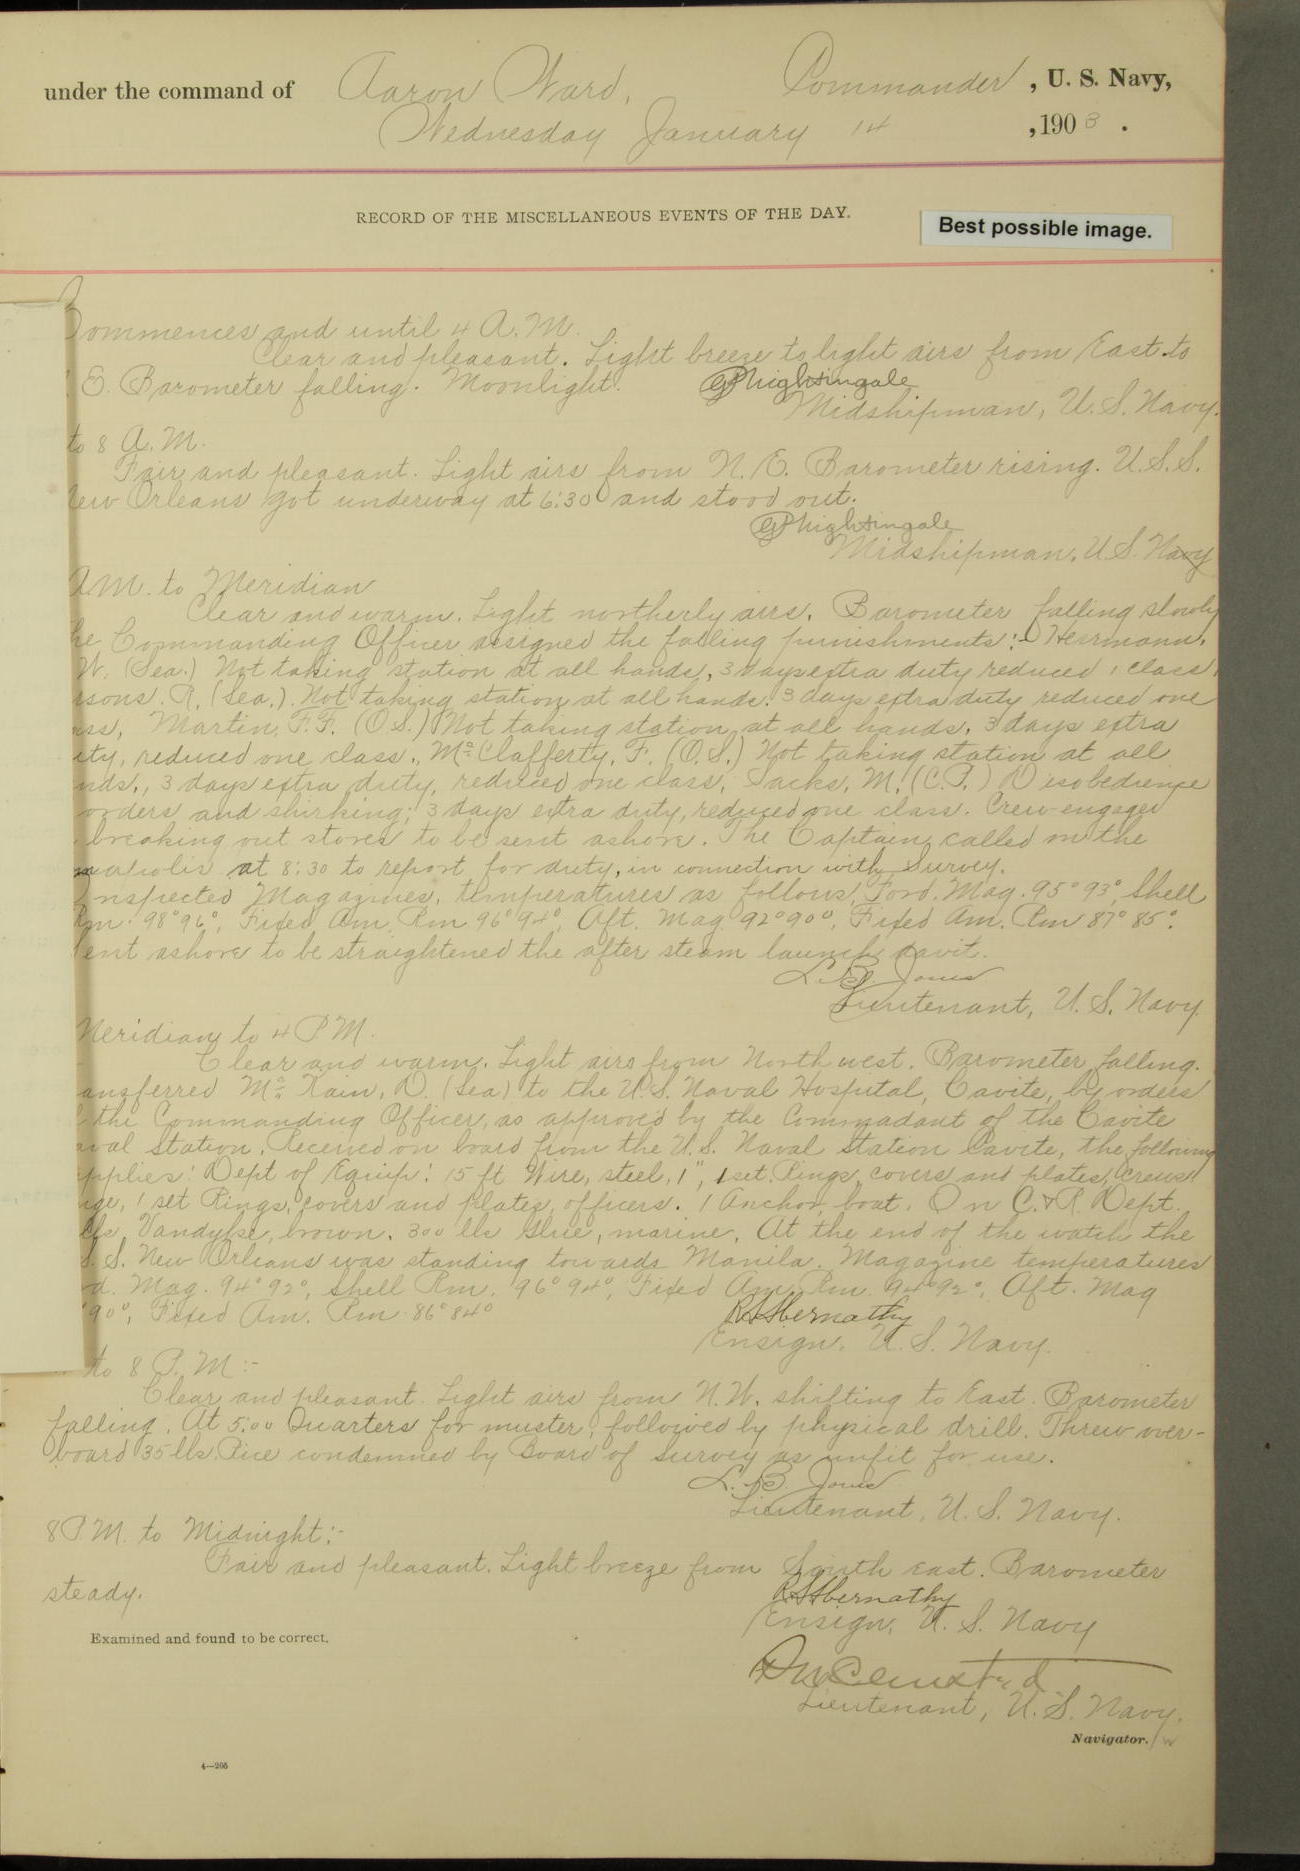 under the command of Aaron Ward, Commander, U. S. Navy,
Wednesday January 14, 1903.
RECORD OF THE MISCELLANEOUS EVENTS OF THE DAY.
Best possible image.
Commences and until 4 A.M.
Clear and pleasant. Light breeze to light airs from East to
E. Barometer falling. Moonlight.
Nightingale
Midshipman, U.S. Navy.
to 8 A.M.
Fair and pleasant. Light airs from N.E. Barometer rising. U.S.S.
New Orleans got underway at 6:30 and stood out.
Nightingale
Midshipman, U.S. Navy
AM. to Meridian
Clear and warm. Light northerly airs. Barometer falling slowly
he Commanding Officer assigned the falling punishments:- Herrmann,
W. (Sea.) Not taking station at all hands, 3 days extra duty reduced 1 class,
rsons. A. (Sea.) Not taking station at all hands. 3 days extra duty reduced one
ass, Martin, F.F. (O.S.) Not taking station at all hands, 3 days extra
ity, reduced one class, McClafferty, F. (O.S.) Not taking station at all
nds., 3 days extra duty, reduced one class, Sacks, M. (C.P.) Disobedience
orders and shirking; 3 days extra duty, reduced one class. Crew engaged
breaking out stores to be sent ashore. The Captain called on the
nnapolis at 8:30 to report for duty, in connection with Survey.
Inspected Magazines, temperatures as follows, Ford. Mag. 95° 93°, Shell
Rm. 98° 96°, Fixed Am. Rm 96° 94°, Aft. Mag 92° 90°, Fixed Am. Rm 87° 85°.
ent ashore to be straightened the after steam launch davit.
L. B. Jones
Lieutenant, U. S. Navy
Meridian to 4 P.M.
Clear and warm. Light airs from North west. Barometer falling.
ansferred McKain, D. (Sea) to the U.S. Naval Hospital, Cavite, by orders
the Commanding Officer, as approved by the Commadant of the Cavite
aval Station. Received on board from the U.S. Naval Station Cavite, the following
pplies: Dept of Equip: 15 ft Wire, steel, 1", 1 set Rings, covers and plates, crews'
nge, 1 set Rings, covers and plates, officers. 1 Anchor, boat. In C.&R. Dept.
lbs Vandyke, brown. 300 lbs Glue, marine. At the end of the watch the
S. S. New Orleans was standing towards Manila. Magazine temperatures
d. Mag. 94° 92°, Shell Rm. 96° 94°, Fixed Am. Rm. 94° 92°, Aft. Mag
90°, Fixed Am. Rm 86° 84°
R.S. Abernathy
Ensign, U. S. Navy.
to 8 P.M:-
Clear and pleasant. Light airs from N.W. shifting to East. Barometer
falling. At 5:00 Quarters for muster, followed by physical drill. Threw over-
board 35 lbs. Rice condemned by Board of Survey as unfit for use.
L. B. Jones
Lieutenant, U. S. Navy.
8 P.M. to Midnight:-
Fair and pleasant. Light breeze from South East. Barometer
steady.
R.S. Abernathy
Ensign, U. S. Navy
Examined and found to be correct.
Lieutenant, U. S. Navy.
Navigator.
4—205